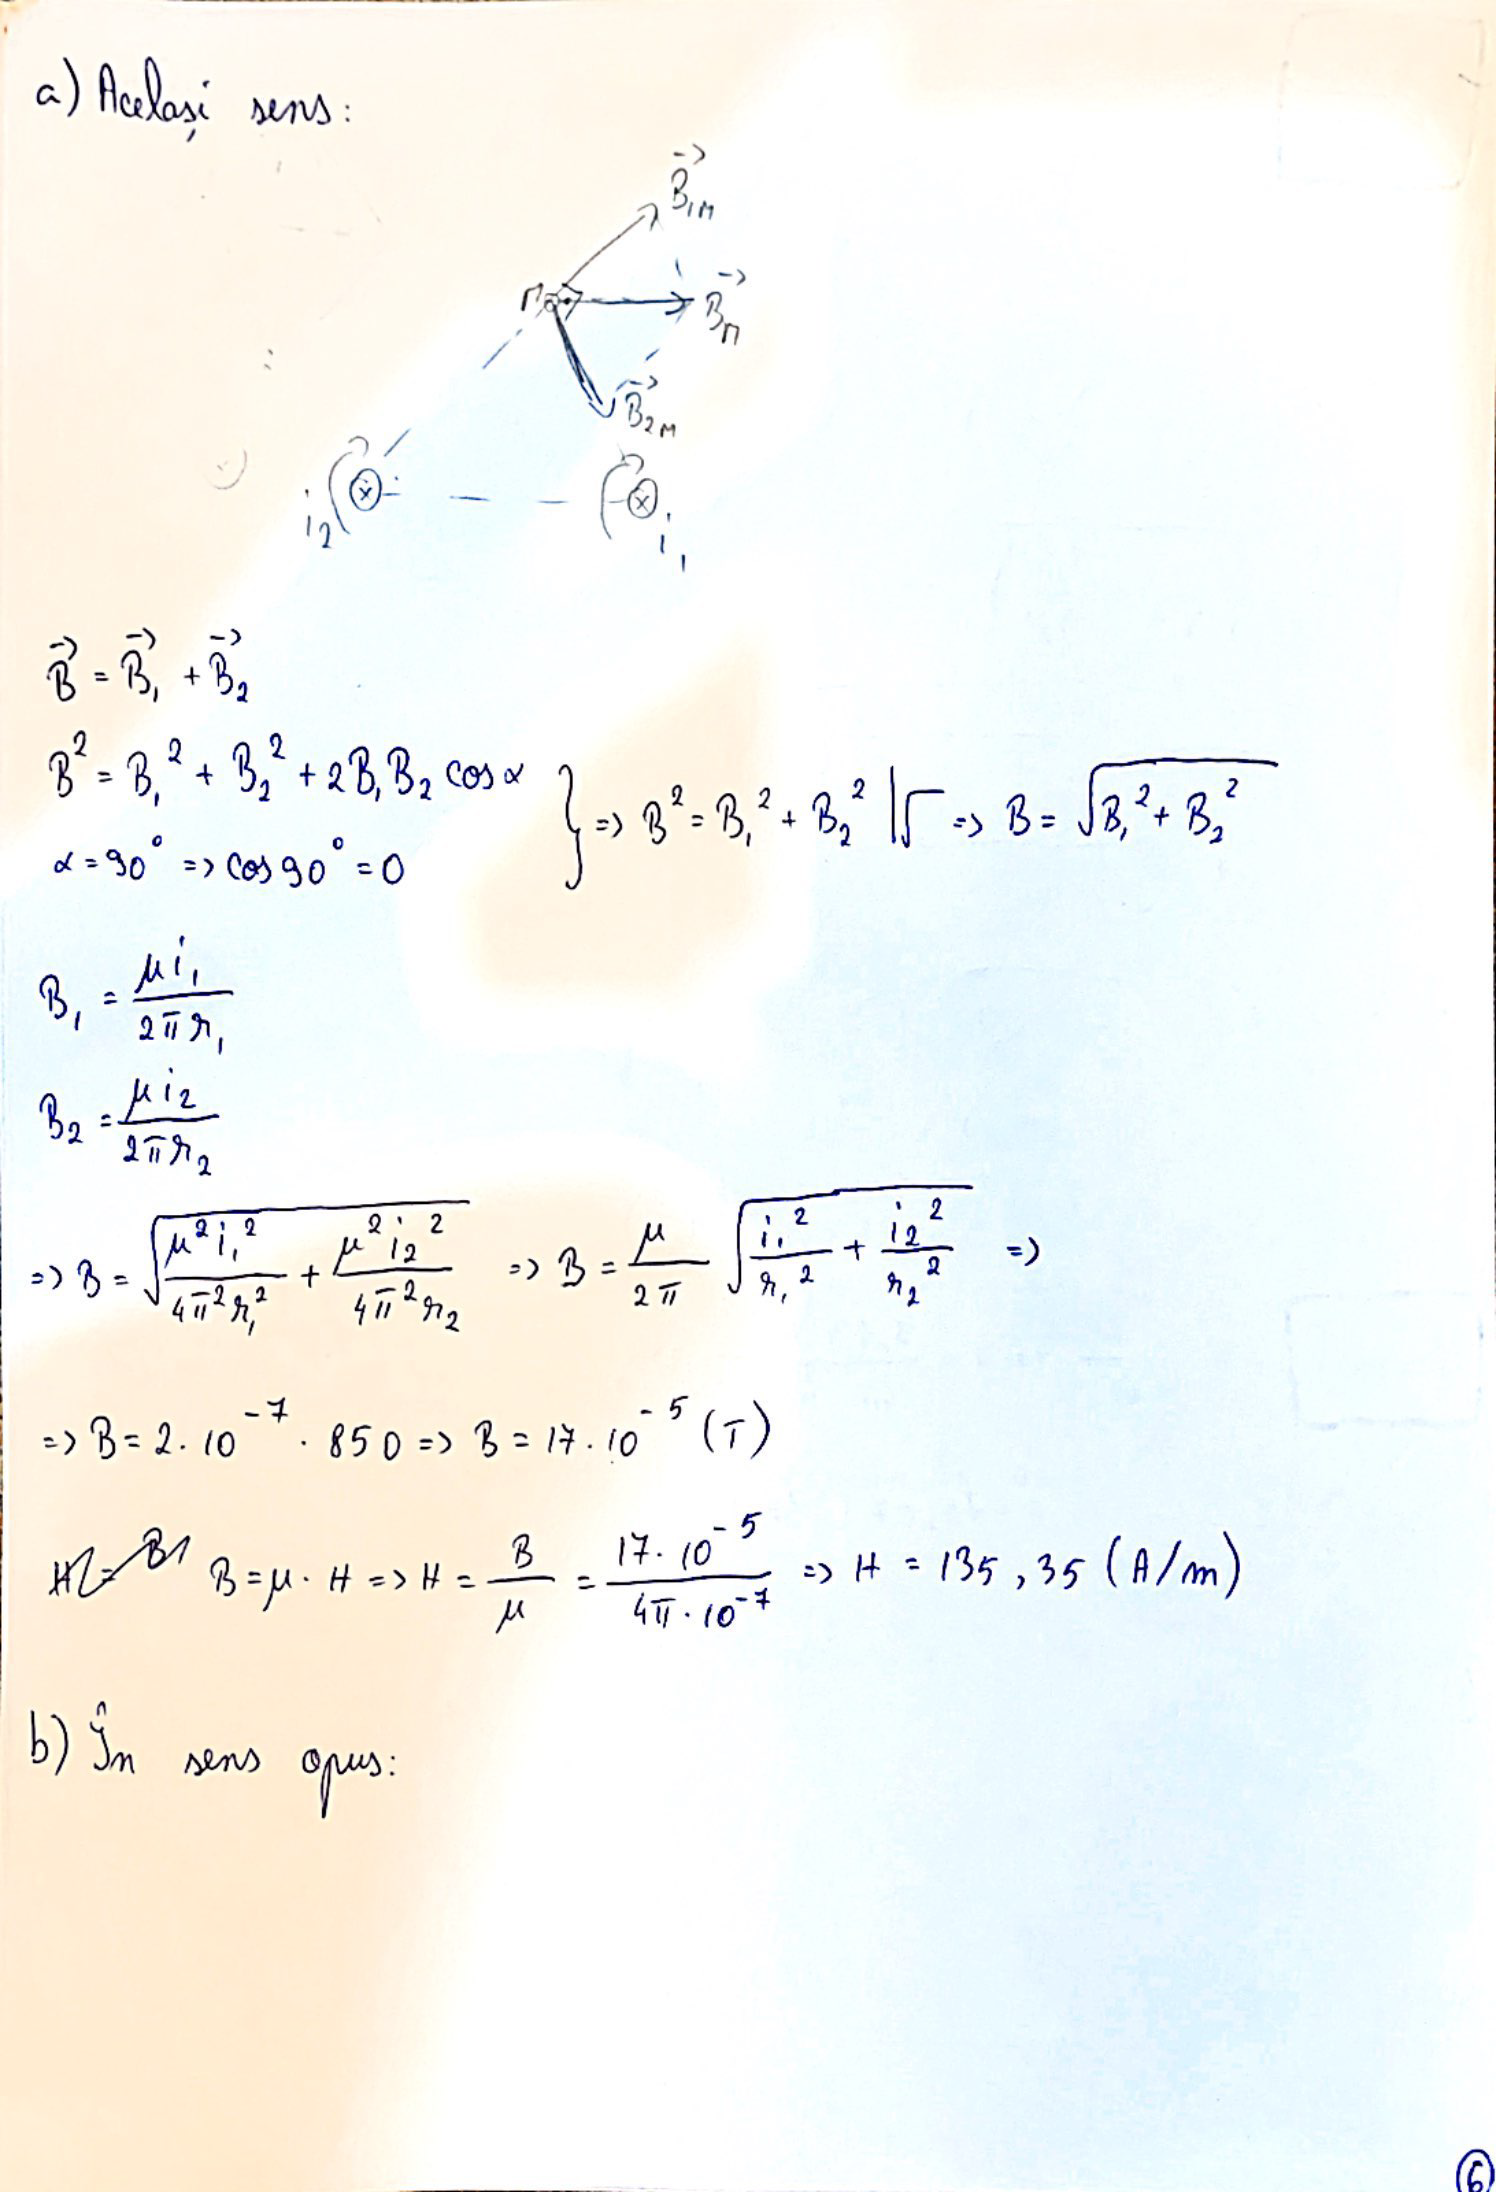 a) Același sens:
B⃗₁M
M
B⃗M
B⃗₂M
i₂
i₁
B⃗ = B⃗₁ + B⃗₂
B² = B₁² + B₂² + 2B₁B₂ cos α
α = 90° => cos 90° = 0
} => B² = B₁² + B₂² |√ => B = √(B₁² + B₂²)
B₁ = μi₁ / 2πr₁
B₂ = μi₂ / 2πr₂
=> B = √(μ²i₁² / 4π²r₁² + μ²i₂² / 4π²r₂) => B = μ / 2π √(i₁² / r₁² + i₂² / r₂²) =>
=> B = 2 · 10⁻⁷ · 850 => B = 17 · 10⁻⁵ (T)
B = μ · H => H = B / μ = 17 · 10⁻⁵ / 4π · 10⁻⁷ => H = 135,35 (A/m)
b) În sens opus:
6